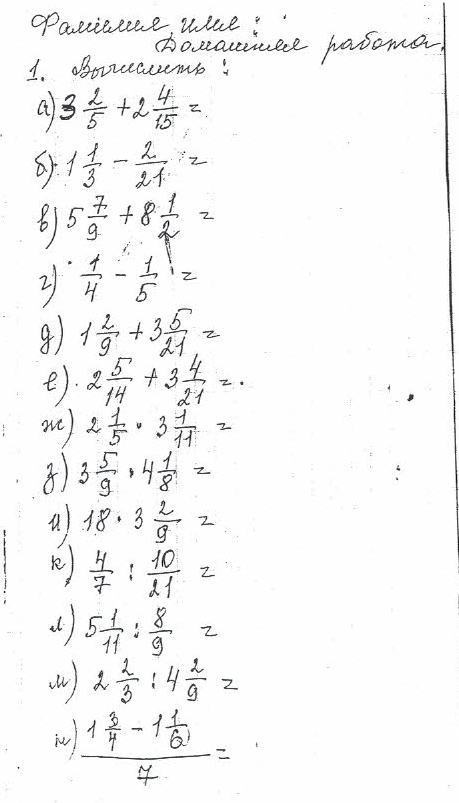 Фамилия, имя:
Домашняя работа.
1. Вычислить:
а) 3 2/5 + 2 4/15 =
б) 1 1/3 - 2/21 =
в) 5 7/9 + 8 1/2 =
г) 1/4 - 1/5 =
д) 1 2/9 + 3 5/21 =
е) 2 5/14 + 3 4/21 =
ж) 2 1/5 · 3 1/11 =
з) 3 5/9 · 4 1/8 =
и) 18 · 3 2/9 =
к) 4/7 : 10/21 =
л) 5 1/11 : 8/9 =
м) 2 2/3 : 4 2/9 =
н) (1 3/4 - 1 1/6)/7 =